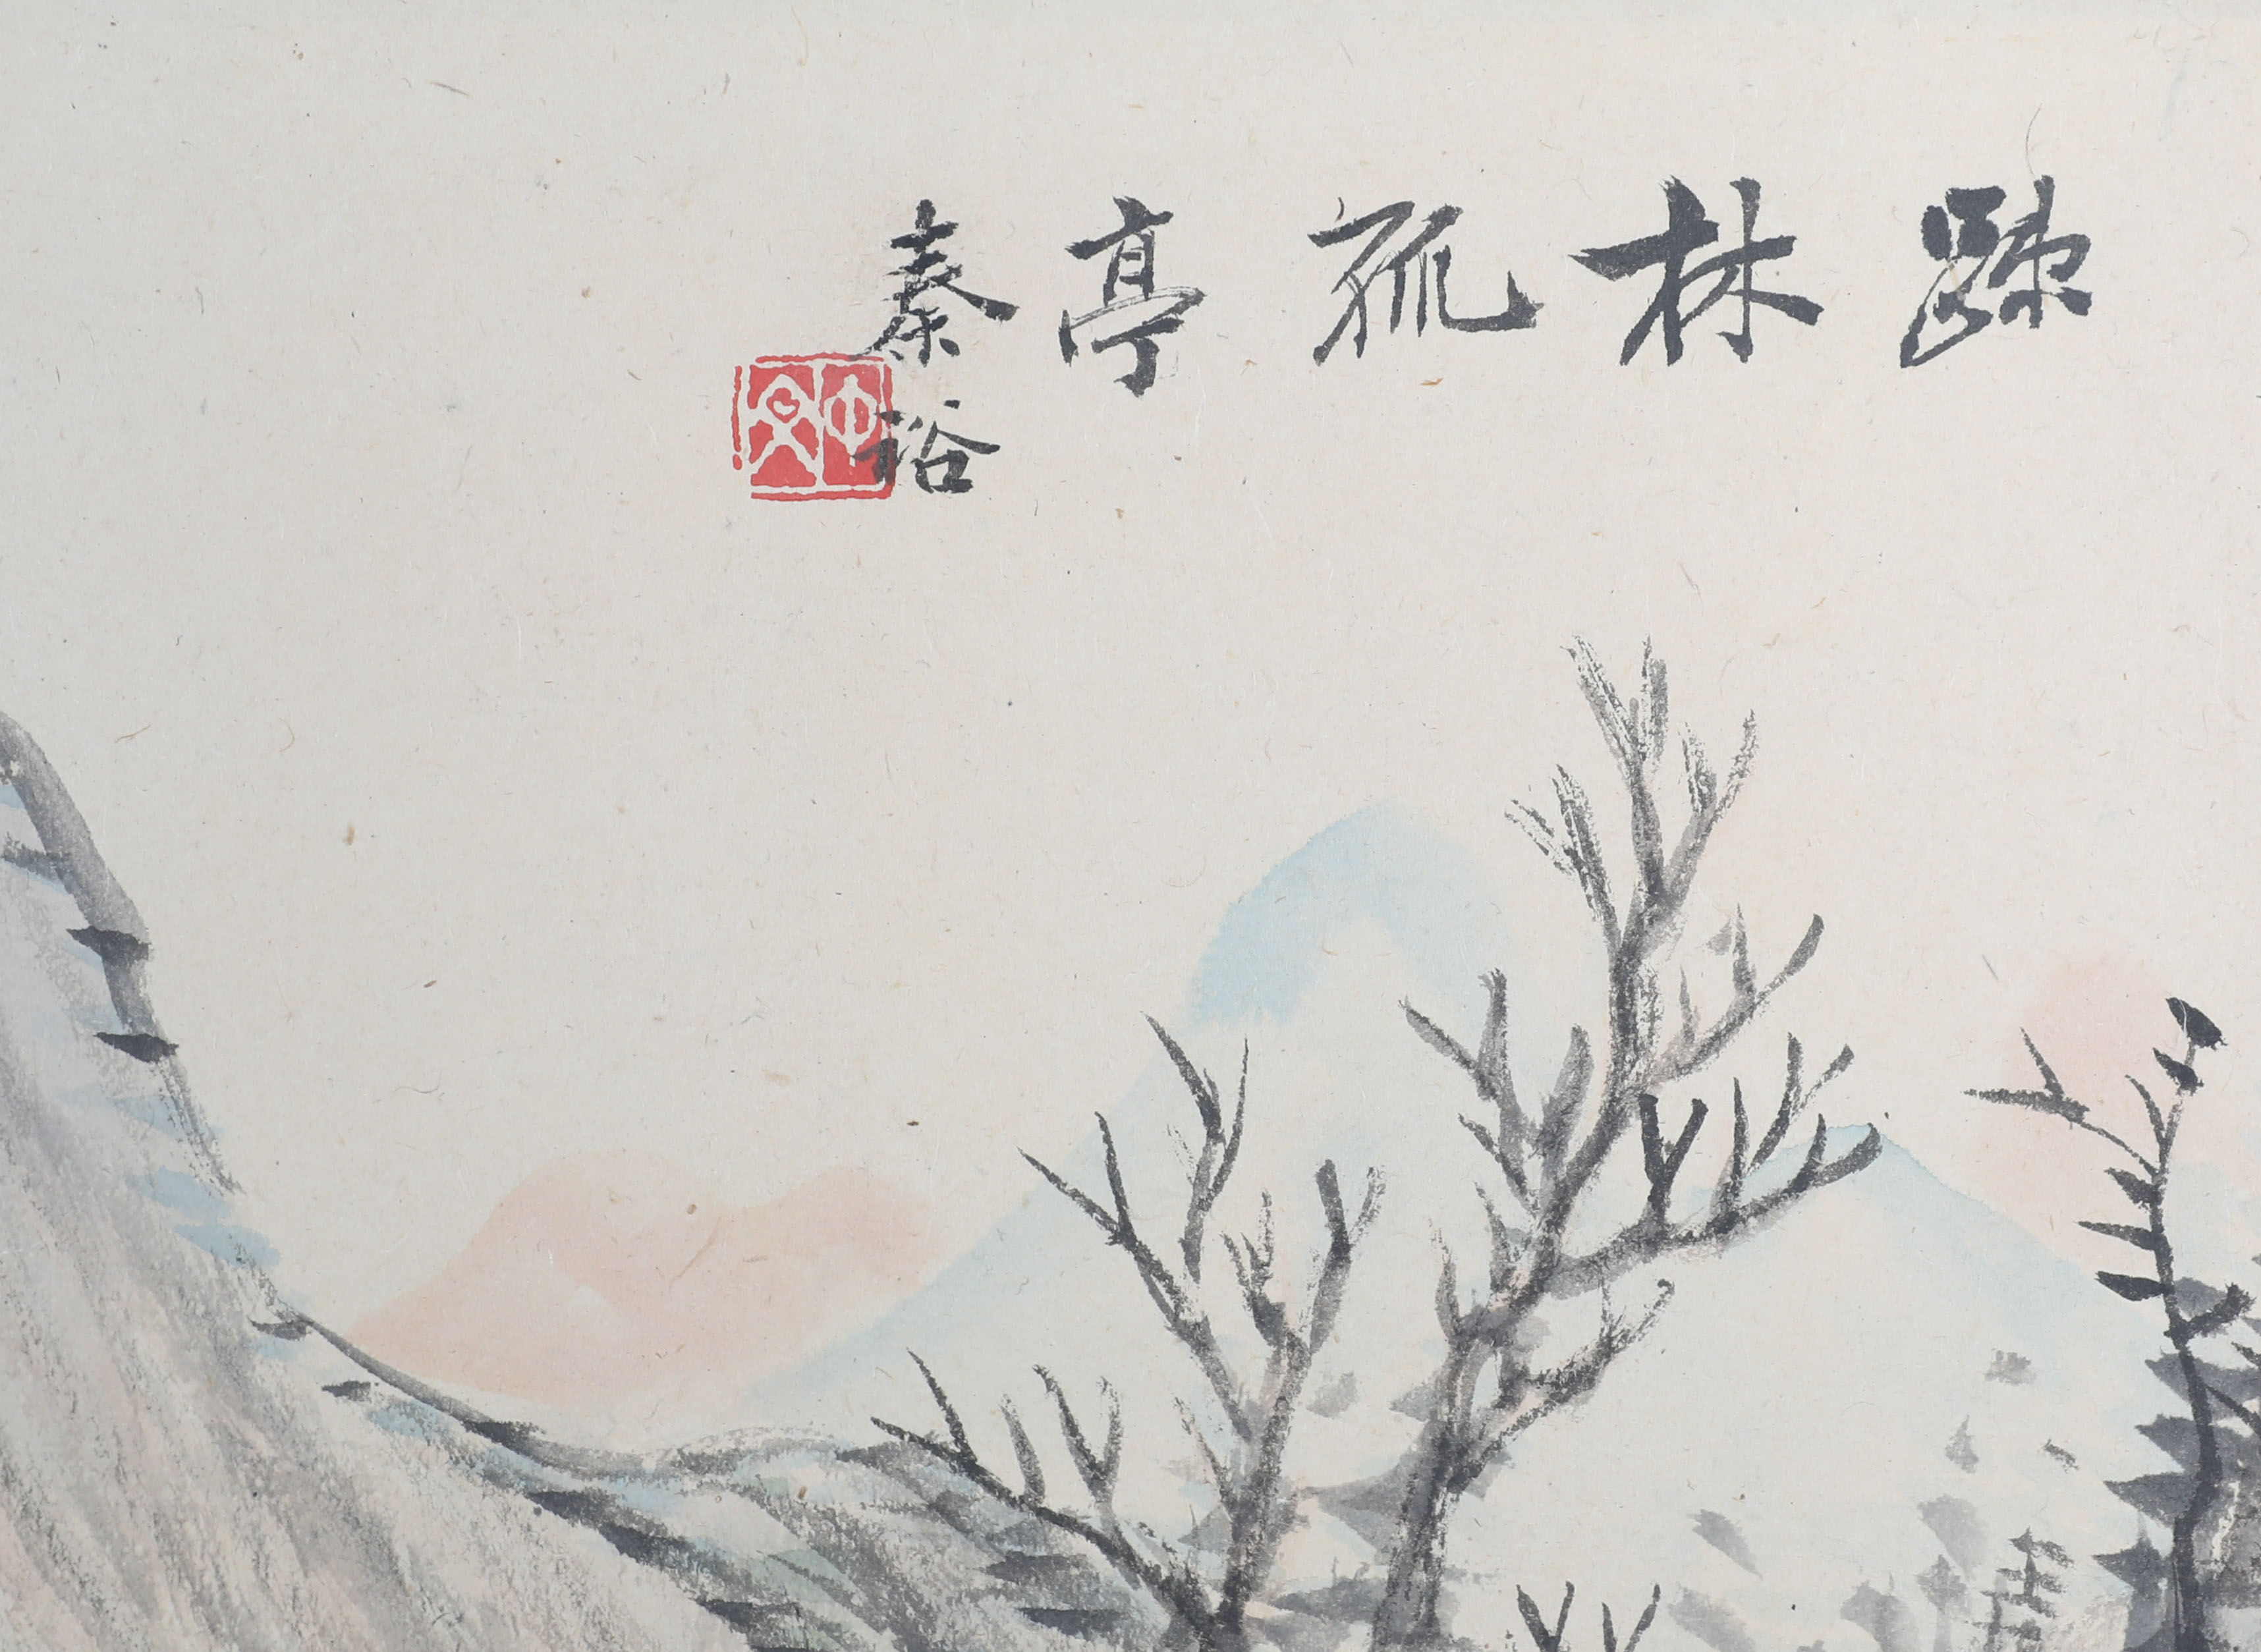 踈林孤亭
秦裕
仲文